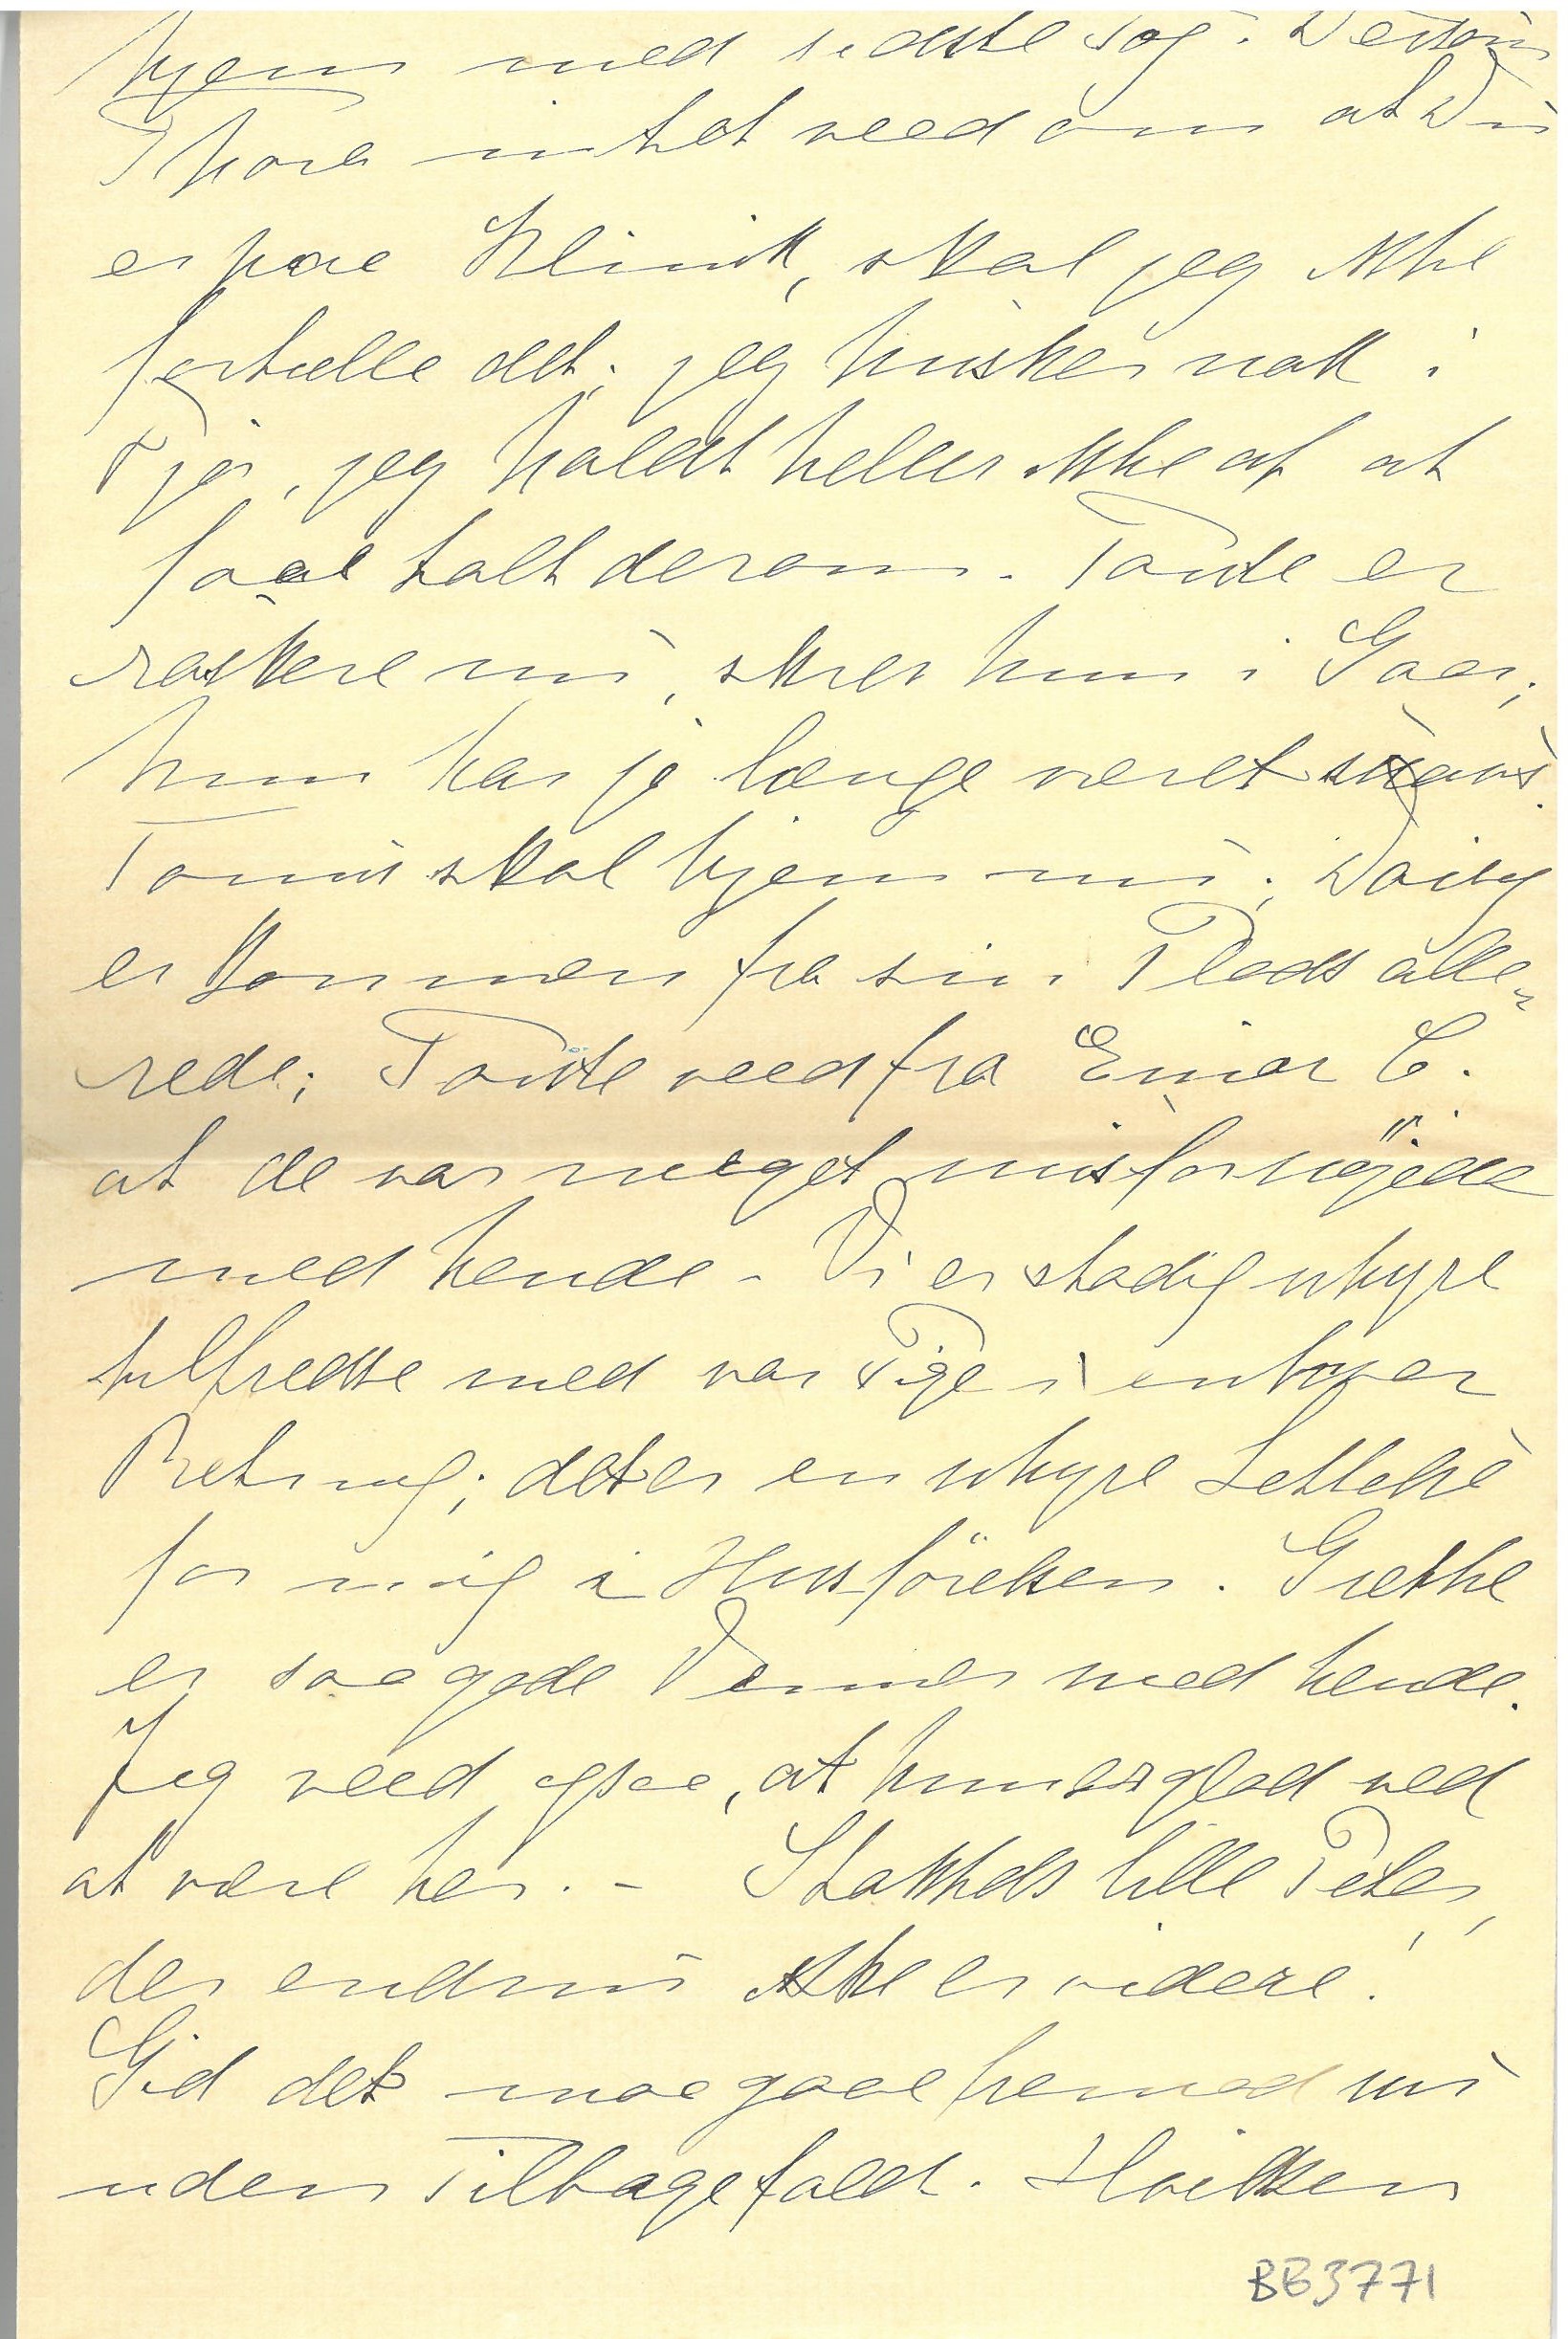 hjem med sidste Tog. Dersom
Thora intet veed om at Du
er paa Klinik, skal jeg ikke
fortælle det; jeg husker nok i
Fjor, jeg holdt heller ikke af at
faae talt derom. Tante er
raskere nu, skrev hun i Gaar;
hun har jo længe været
skal hjem nu; Daisy
er kommen fra sin Plads alle-
rede; Tante veed fra Einar C.
at de var meget misfornøjede
med hende - Vi er stadig uhyre
tilfredse med vor Pige i enhver
Retning; det er en uhyre Lettelse
for mig i Husførelsen. Grethe
er saa gode Venner med hende.
Jeg veed ogsaa, at hun er glad ved
at være her. - Stakkels lille Peter,
der endnu ikke er videre!
Gid det maa gaae fremad nu
uden Tilbagefald. Hvilken
BB3771